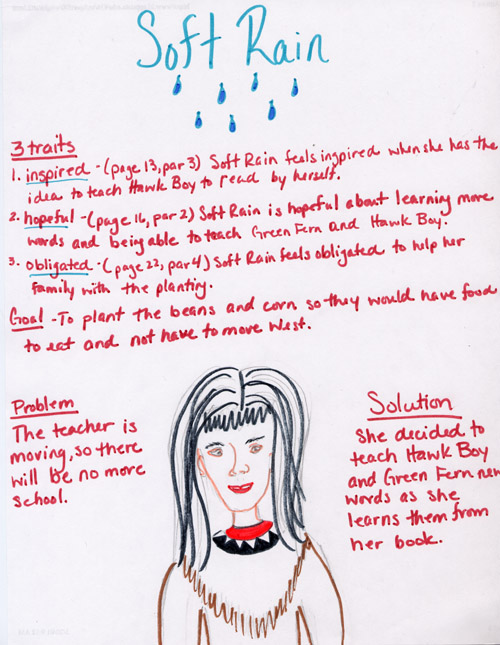 Soft Rain
3 traits
1. inspired - (page 13, par 3) Soft Rain feels inspired when she has the
idea to teach Hawk Boy to read by herself.
2. hopeful - (page 16, par 2) Soft Rain is hopeful about learning more
words and being able to teach Green Fern and Hawk Boy.
3. obligated - (page 22, par 4) Soft Rain feels obligated to help her
family with the planting.
Goal - To plant the beans and corn so they would have food
to eat and not have to move West.
Problem
The teacher is
moving, so there
will be no more
school.
Solution
She decided to
teach Hawk Boy
and Green Fern new
words as she
learns them from
her book.